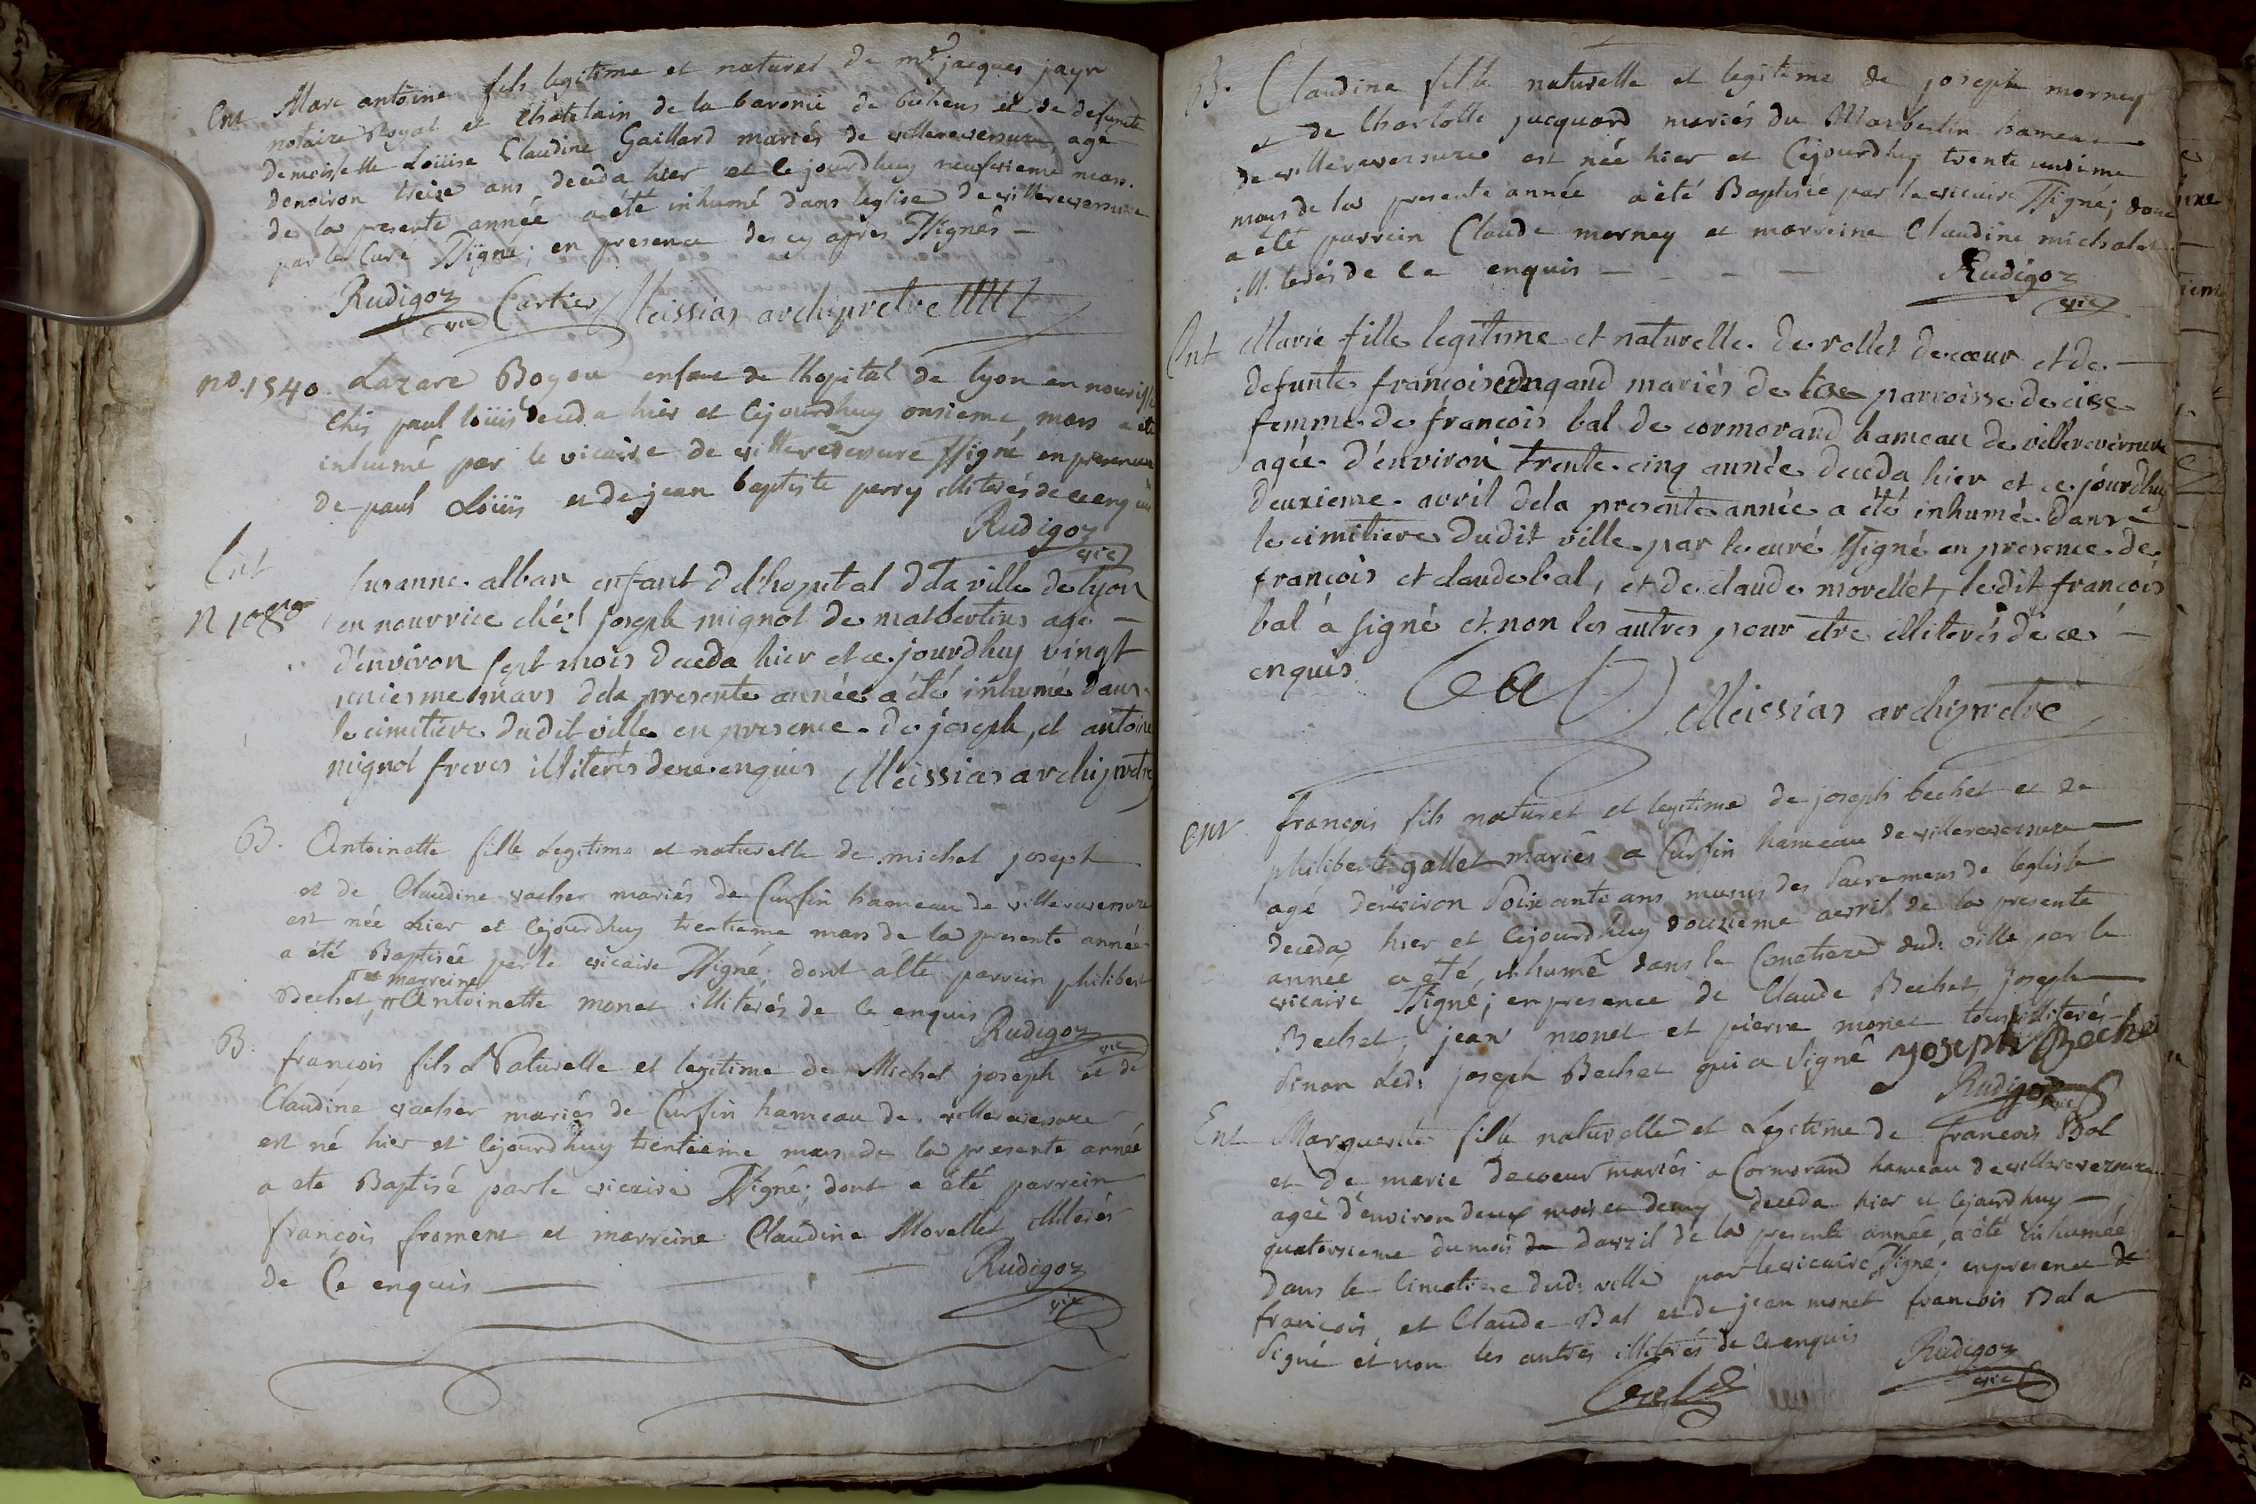 Ent Marc antoine fils legitime et naturel de mre jacques jayr
notaire Royal et Châtelain de la baronie de bohens et de defunte
demoiselle Loüise Claudine Gaillard mariés de villereversure, age
denviron treize ans deceda hier et le jourdhuy neufvieme mars
de la presente année a été inhumé dans léglise de villereversure
par le Curé Ssigné; en presence des cy apres Ssignés —
Rudigoz vic Cartier Meissias archipretre
no. 1540. Lazare enfant de lhopital de lyon en nourisse
Chés paul loüis deceda hier et cejourdhuy onsieme mars a été
inhumé par le vicaire de villereversure Ssigné en presence
de paul Loüis et de jean baptiste perry illiterés de ce enquis
Rudigoz vic
Ent
N 1080 Susanne alban enfant de lhopital de la ville de lyon
en nourrice chéz joseph mignot de malbertins agé —
d'environ sept mois deceda hier et ce jourdhuy vingt
uniesme mars dela presente année a été inhumé dans
le cimitiere dudit ville en presence de joseph, et antoine
mignot freres illiterés de ce enquis Meissias archipretre
B. Antoinette fille Legitime et naturelle de michel joseph
et de Claudine vacher mariés de Curfin hameau de villereversure
est née hier et cejourdhuy trentieme mars de la presente année
a été Baptisée par le vicaire Ssigné; dont a été parrein philibert
et marreine
Bechet, Antoinette monet illiterés de ce enquis Rudigoz vic
B. françois fils Naturelle et legitime de Michel joseph et de
Claudine vacher mariés de Curfin hameau de villereversure
est né hier et cejourdhuy trentieme mars de la presente année
a été Baptisé par le vicaire Ssigné; dont a été parrein
françois froment et marreine Claudine Morellet illiterés
de Ce enquis — Rudigoz
vic
B. Claudine fille naturelle et legitime de joseph morney
et de Charlotte jacquard mariés du Malbertin hameau
de villereversure est née hier et Cejourdhuy trente unsime
mars de la presente année a été Baptisée par le vicaire Ssigné; dont
a été parrein Claude morney et marreine Claudine michalet
illiterés de Ce enquis — Rudigoz
vic
Ent Marie fille legitime et naturelle de rollet decœur et de —
defunte françoise mariés de parroisse de cise
femme de françois bal de cormorand hameau de villereversure
agée d'environ trente cinq année deceda hier et ce jourdhuy
deuxieme avril dela presente année a été inhumé dans
le cimitiere dudit ville par le curé Ssigné en presence de
françois et claude bal, et de claude morellet, ledit françois
bal à signé et non les autres pour etre illiterés de ce —
enquis
Bal Meissias archipretre
ent françois fils naturel et legitime de joseph bechet et de
philiberte gallet mariés a Curfin hameau de villereversure —
agé d'environ Soixante ans munis des Sacremens de leglise
deceda hier et Cejourdhuy douzieme avril de la presente
année a été inhumé dans le Cimetiere dudi ville par le
vicaire Ssigné; en presence de Claude Bechet, joseph
Bechet, jean monet et pierre monet tous illiterés
Sinon Ledi joseph Bechet qui a Signé yoseph Beche
Rudigoz vic
Ent Marguerite fille naturelle et Legitime de francois Bal
et de marie decoeur mariés a Cormorand hameau de villereversure
agée d'environ deux mois et demy deceda hier et Cejourdhuy —
quatorsieme du mois davril de la presente année, a été inhumée
dans le Cimetiere dudi ville par le vicaire Ssigné; en presence de
françois, et Claude Bal et de jean monet francois Bal a
Signé et non les autres illiterés de ce enquis Rudigoz
vic
Bal